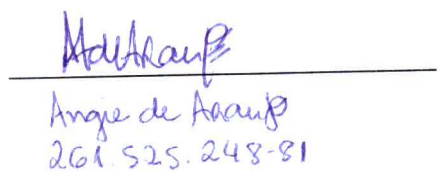 Angie de Araujo
261.525.248-81